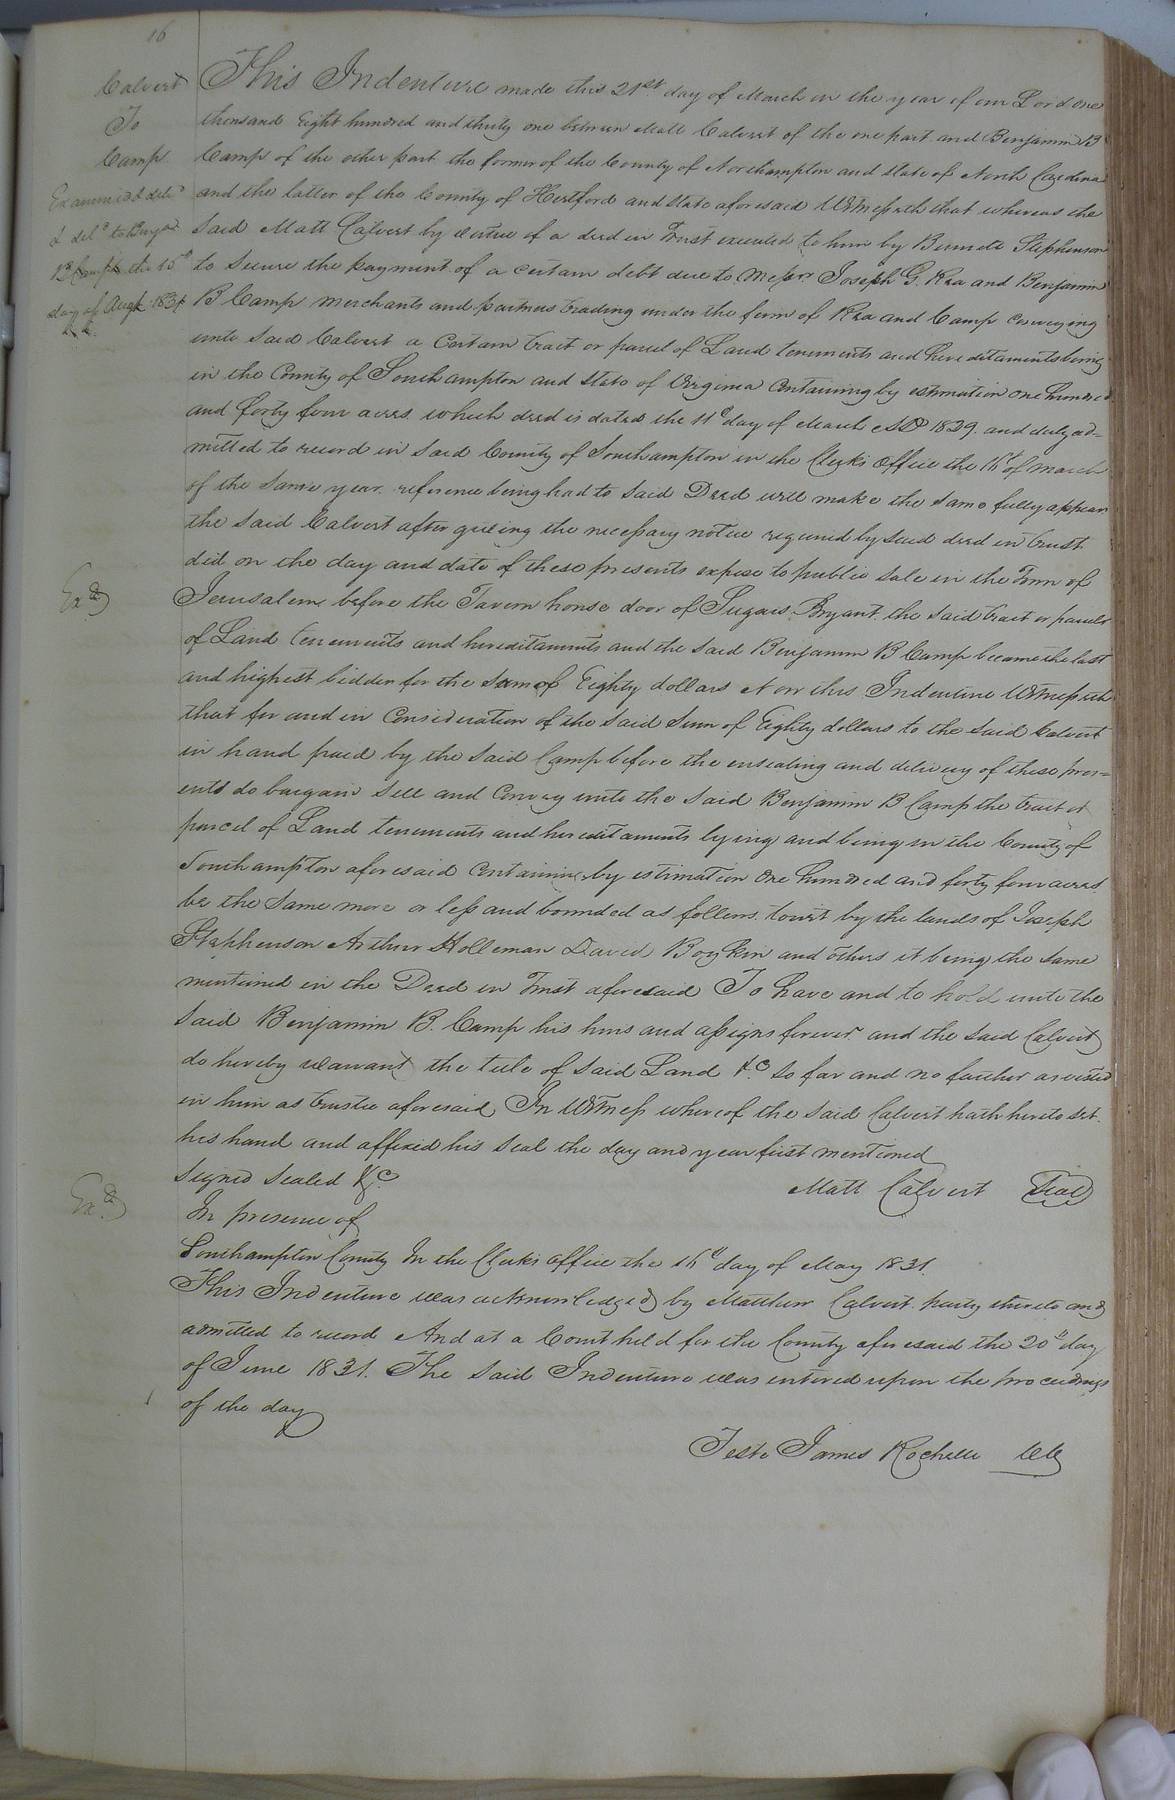 16
Calvert
To
Camp
Examined & deld
& deld to Benja
B Camp the 15th
day of Augt 1831
This Indenture made this 21st day of March in the year of our Lord One
thousand Eight hundred and thirty one between Matt Calvert of the one part and Benjamin B
Camp of the other part the former of the County of Northampton and State of North Carolina
and the latter of the County of Hertford and State aforesaid Witnesseth that whereas the
said Matt Calvert by virtue of a deed in Trust executed to him by Stephenson
to Secure the payment of a certain debt due to Messrs Joseph G. Rea and Benjamin
B Camp merchants and partners trading under the firm of Rea and Camp conveying
unto said Calvert a Certain tract or parcel of Land tenements and hereditaments being
in the County of Southampton and State of Virginia Containing by estimation one hundred
and forty four acres. which deed is dated the 11th day of March AD 1829. and duly ad=
mitted to record in said County of Southampton in the Clerks Office the 16th of march
of the same year. reference being had to said Deed will make the same fully appear
the said Calvert after giving the necessary notice required by said deed in trust
did on the day and date of these presents expose to public sale in the Town of
Exd
Jerusalem before the Tavern house door of Bryant. the said tract or parcel
of Land tenements and hereditaments and the said Benjamin B Camp became the last
and highest bidder for the sum of Eighty dollars Now this Indenture Witnesseth
that for and in Consideration of the said Sum of Eighty dollars to the said Calvert
in hand paid by the said Camp before the ensealing and delivery of these pres=
ents do bargain sell and Convey unto the said Benjamin B Camp the tract or
parcel of Land tenements and hereditaments lying and being in the County of
Southampton aforesaid Containing by estimation One hundred and forty four acres
be the same more or less and bounded as follows. towit by the lands of Joseph
Stephenson Arthur Holleman David Boykin and others it being the same
mentioned in the Deed in Trust aforesaid To have and to hold unto the
said Benjamin B. Camp his heirs and assigns forever. and the said Calvert
do hereby warrant the title of said Land &c so far and no farther as vested
in him as trustee aforesaid In Witness whereof the said Calvert hath hereto set.
his hand and affixed his seal the day and year first mentioned
Signed Sealed &c
Matt Calvert Seal
Exd
In presence of
Southampton County In the Clerks office the 16th day of May 1831.
This Indenture was acknowledged by Matthew Calvert. party thereto and
admitted to record And at a Court held for the County aforesaid the 20th day
of June 1831. The said Indenture was entered upon the proceedings
of the day
Teste James Rochelle CC